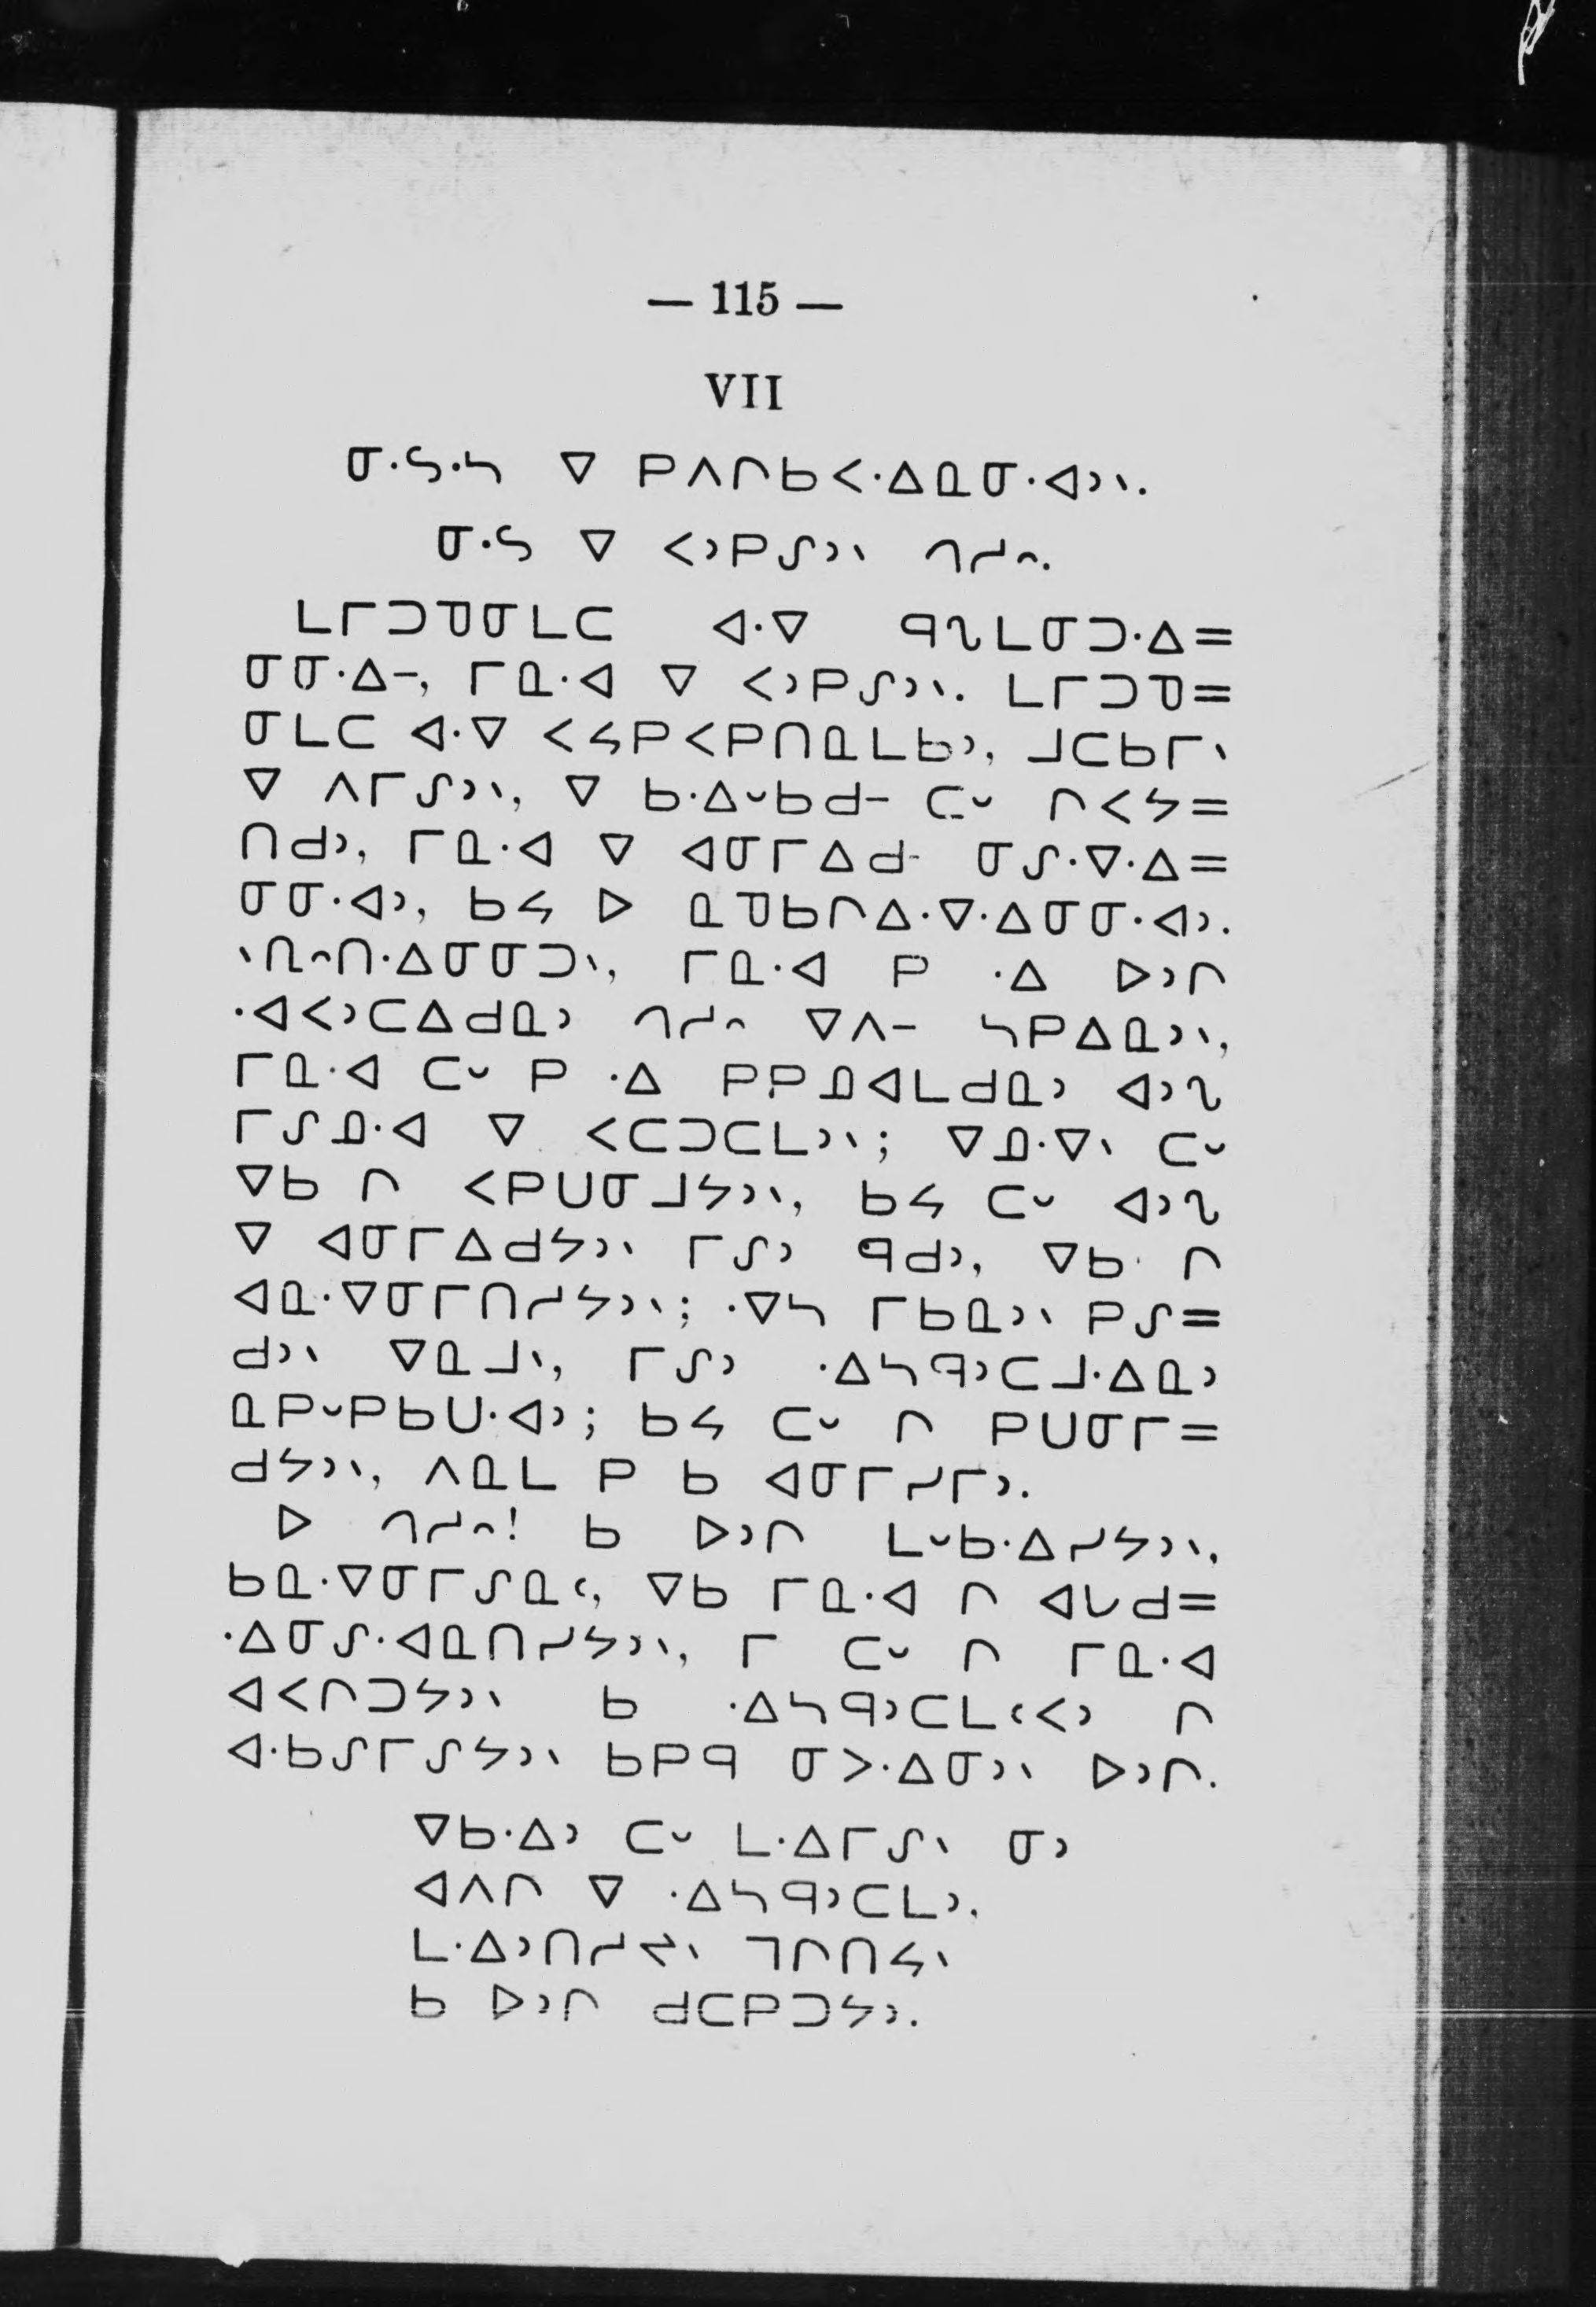 — 115 —
VII
ᓂ·ᓭ·ᓴ ᐁ ᑭᐱᒋᑲᐸ·ᐃᓇᓂ·ᐊᐣᐠ.
ᓂ·ᓭ ᐁ ᐸᐣᑭᔑᐣᐠ ᒉᓱᐢ.
ᒪᒥᑐᓀᓂᒪᑕ ᐊ·ᐁ ᑫᔐᒪᓂᑐ·ᐃ=
ᓂᓂ·ᐃᐨ, ᒥᓇ·ᐊ ᐁ ᐸᐣᑭᔑᐣᐠ. ᒪᒥᑐᓀ=
ᓂᒪᑕ ᐊ·ᐁ ᐸᔭᑭᐸᑭᑎᓇᒪᑲᐣ, ᒧᑕᑲᒥᐠ
ᐁ ᐱᒥᔑᐣᐠ, ᐁ ᑲ·ᐃᐡᑲᑯᐨ ᑕᐡ ᒋᐸᔦ=
ᑎᑯᐣ, ᒥᓇ·ᐊ ᐁ ᐊᓂᒥᐃᑯᐨ ᓂᔑ·ᐁ·ᐃ=
ᓂᓂ·ᐊᐣ, ᑲᔭ ᐅ ᓇᓀᑲᒋᐃ·ᐁ·ᐃᓂᓂ·ᐊᐣ.
ᐠᒣᐢᑎ·ᐃᓂᓂᑐᐠ, ᒥᓇ·ᐊ ᑭ ·ᐃ ᐅᐣᒋ
·ᐊᐸᐣᑕᐃᑯᓇᐣ ᒉᓱᐢ ᐁᐱᐨ ᓴᑭᐃᓇᐣᐠ,
ᒥᓇ·ᐊ ᑕᐡ ᑭ ·ᐃ ᑭᑭᓄᐊᒪᑯᓇᐣ ᐊᐣᔐ
ᒥᔑᓄ·ᐊ ᐁ ᐸᑕᑐᑕᒪᐣᐠ; ᐁᓄ·ᐁᐠ ᑕᐡ
ᐁᑲ ᒋ ᐸᑭᑌᓂᒧᔦᐣᐠ, ᑲᔭ ᑕᐡ ᐊᐣᔐ
ᐁ ᐊᓂᒥᐃᑯᔦᐣᐠ ᒥᔑᐣ ᑫᑯᐣ, ᐁᑲ ᒋ
ᐊᓇ·ᐁᓂᒥᑎᓱᔦᐣᐠ; ·ᐁᓴ ᒥᑲᓇᐣᐠ ᑭᔑ=
ᑯᐣᐠ ᐁᓇᒧᐠ, ᒥᔑᐣ ·ᐃᓴᑫᐣᑕᒧ·ᐃᓇᐣ
ᓇᑭᐡᑭᑲᑌ·ᐊᐣ; ᑲᔭ ᑕᐡ ᒋ ᑭᑌᓂᒥ=
ᑯᔦᐣᐠ, ᐱᓇᒪ ᑭ ᑲ ᐊᓂᒥᓯᒥᐣ.
ᐅ ᒉᓱᐢ! ᑲ ᐅᐣᒋ ᒪᐡᑲ·ᐃᓯᔦᐣᐠ,
ᑲᓇ·ᐁᓂᒥᔑᓇᑉ, ᐁᑲ ᒥᓇ·ᐊ ᒋ ᐊᒐᑯ=
·ᐃᓂᔑ·ᐊᓇᑎᓯᔦᐣᐠ, ᒥ ᑕᐡ ᒋ ᒥᓇ·ᐊ
ᐊᐸᒋᑐᔦᐣᐠ ᑲ ·ᐃᓴᑫᐣᑕᒪᑉᐸᐣ ᒋ
ᐊ·ᑲᔑᒥᔑᔦᐣᐠ ᑲᑭᑫ ᓂᐳ·ᐃᓂᐣᐠ ᐅᐣᒋ.
ᐁᑲ·ᐃᐣ ᑕᐡ ᒪ·ᐃᒥᔑᐠ ᓂᐣ
ᐊᐱᒋ ᐁ ·ᐃᓴᑫᐣᑕᒪᐣ,
ᒪ·ᐃᐣᑎᓱᔪᐠ ᒣᒋᑎᔭᐠ
ᑲ ᐅᐣᒋ ᑯᑕᑭᑐᔦᐣ.